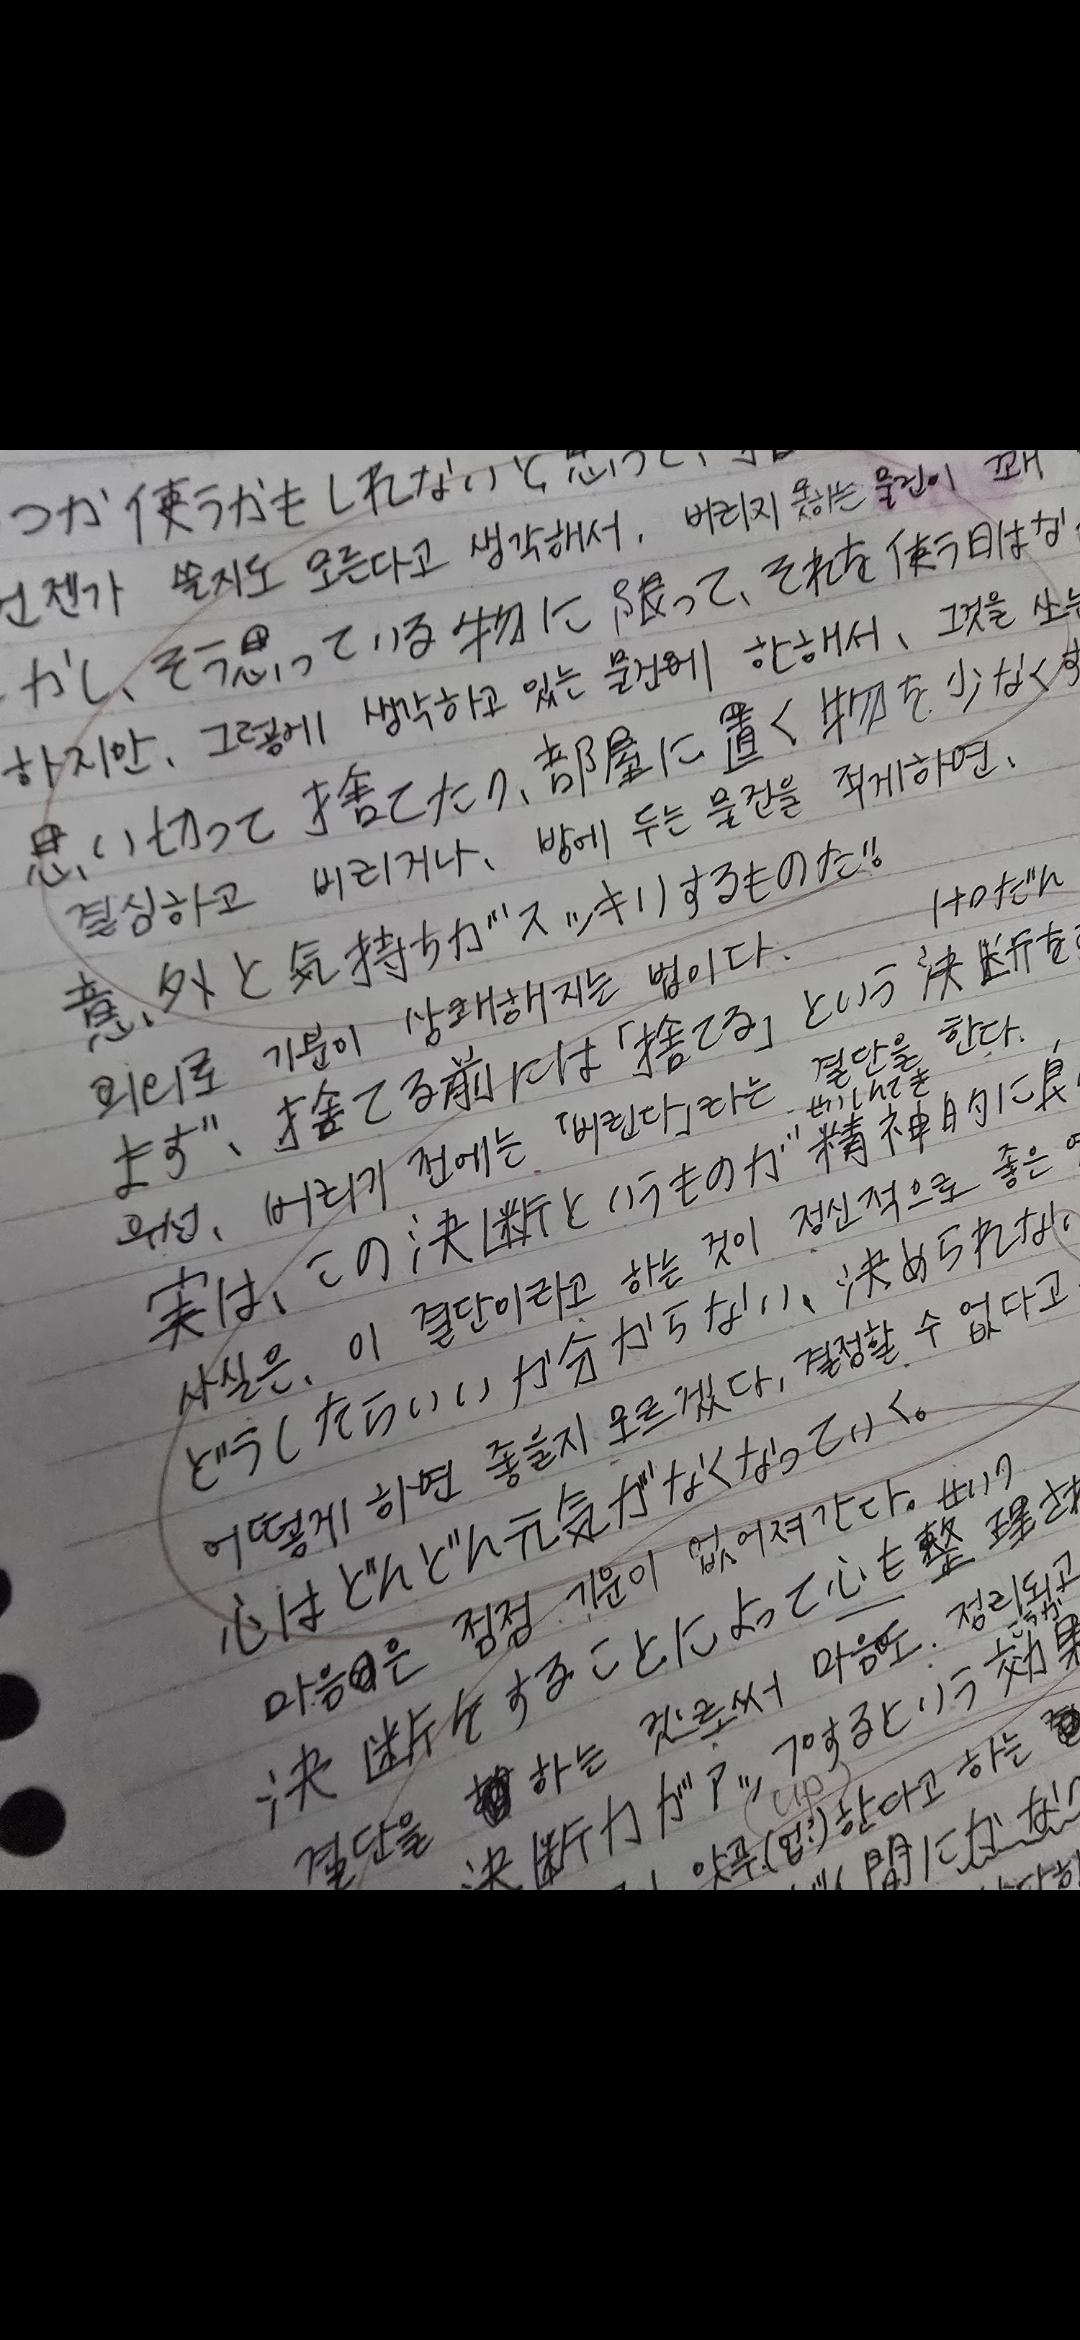 つか使うかもしれないと思って、
언젠가 쓸지도 모른다고 생각해서, 버리지 못하는 물건이 꽤
かし、そう思っている物に限って、それを使う日はな
하지만, 그렇게 생각하고 있는 물건에 한해서, 그것을
思い切って捨てたり、部屋に置く物を少なくす
결심하고 버리거나, 방에 두는 물건을 적게하면,
意外と気持ちがスッキリするものだ。
의외로 기분이 상쾌해지는 법이다.
けつだん
まず、捨てる前には「捨てる」という決断を
우선, 버리기 전에는 「버린다」라는 결단을 한다.
せいしんてき
実は、この決断というものが精神的に良
사실은, 이 결단이라고 하는 것이 정신적으로 좋은
どうしたらいいか分からない、決められない
어떻게 하면 좋을지 모르겠다, 결정할 수 없다고
心はどんどん元気がなくなっていく。
마음은 점점 기운이 없어져 간다.
せいり
決断をすることによって心も整理さ
결단을 하는 것으로써 마음도 정리되고
こうか
決断力がアップするという効果
(up)
(업)한다고 하는
間にか